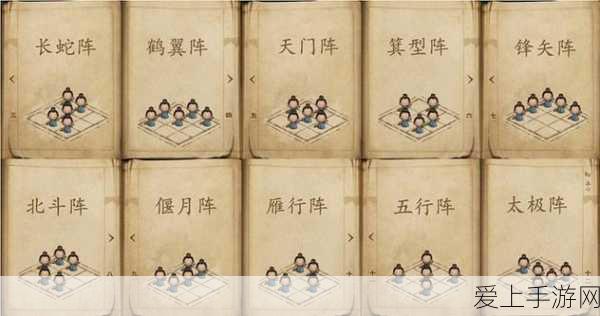 长蛇阵
鹤翼阵
天门阵
箕型阵
锋矢阵
三
四
五
六
七
北斗阵
偃月阵
雁行阵
五行阵
太极阵
八
九
十
爱上手游网